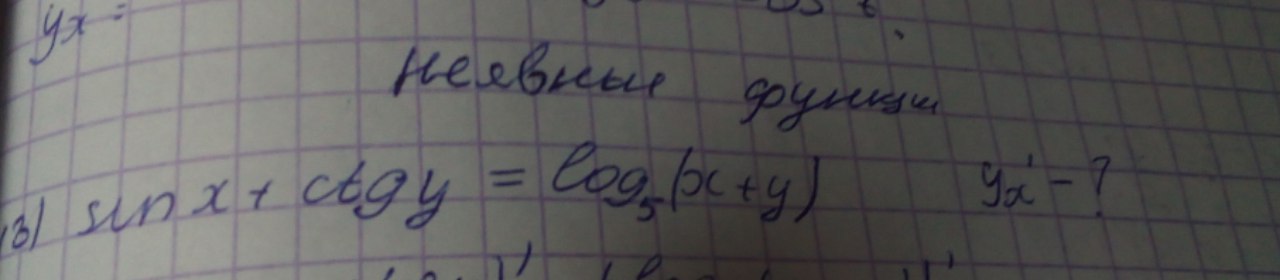 yx =
Неявные функции
13) sin x + ctg y = log₅(x + y) y'x - ?